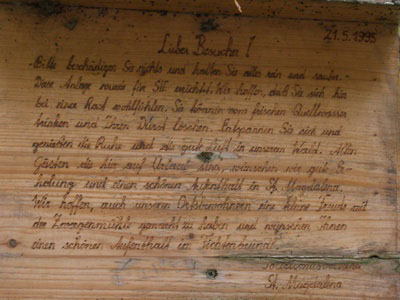 21.5.1995
Lieber Besucher!
Bitte beschädigen Sie nichts und halten Sie alles rein und sauber.
Diese Anlage wurde für Sie errichtet. Wir hoffen, daß Sie sich hier
bei einer Rast wohlfühlen. Sie können vom frischen Quellwasser
trinken und Ihren Durst löschen. Entspannen Sie sich und
genießen die Ruhe und die gute Luft in unserem Wald. Allen
Gästen die hier auf Urlaub sind, wünschen wir gute Er-
holung und einen schönen Aufenthalt in St. Magdalena.
Wir hoffen, auch unseren Ortsbewohnern eine kleine Freude mit
der gemacht zu haben und wünschen Ihnen
einen schönen Aufenthalt im
St. Magdalena